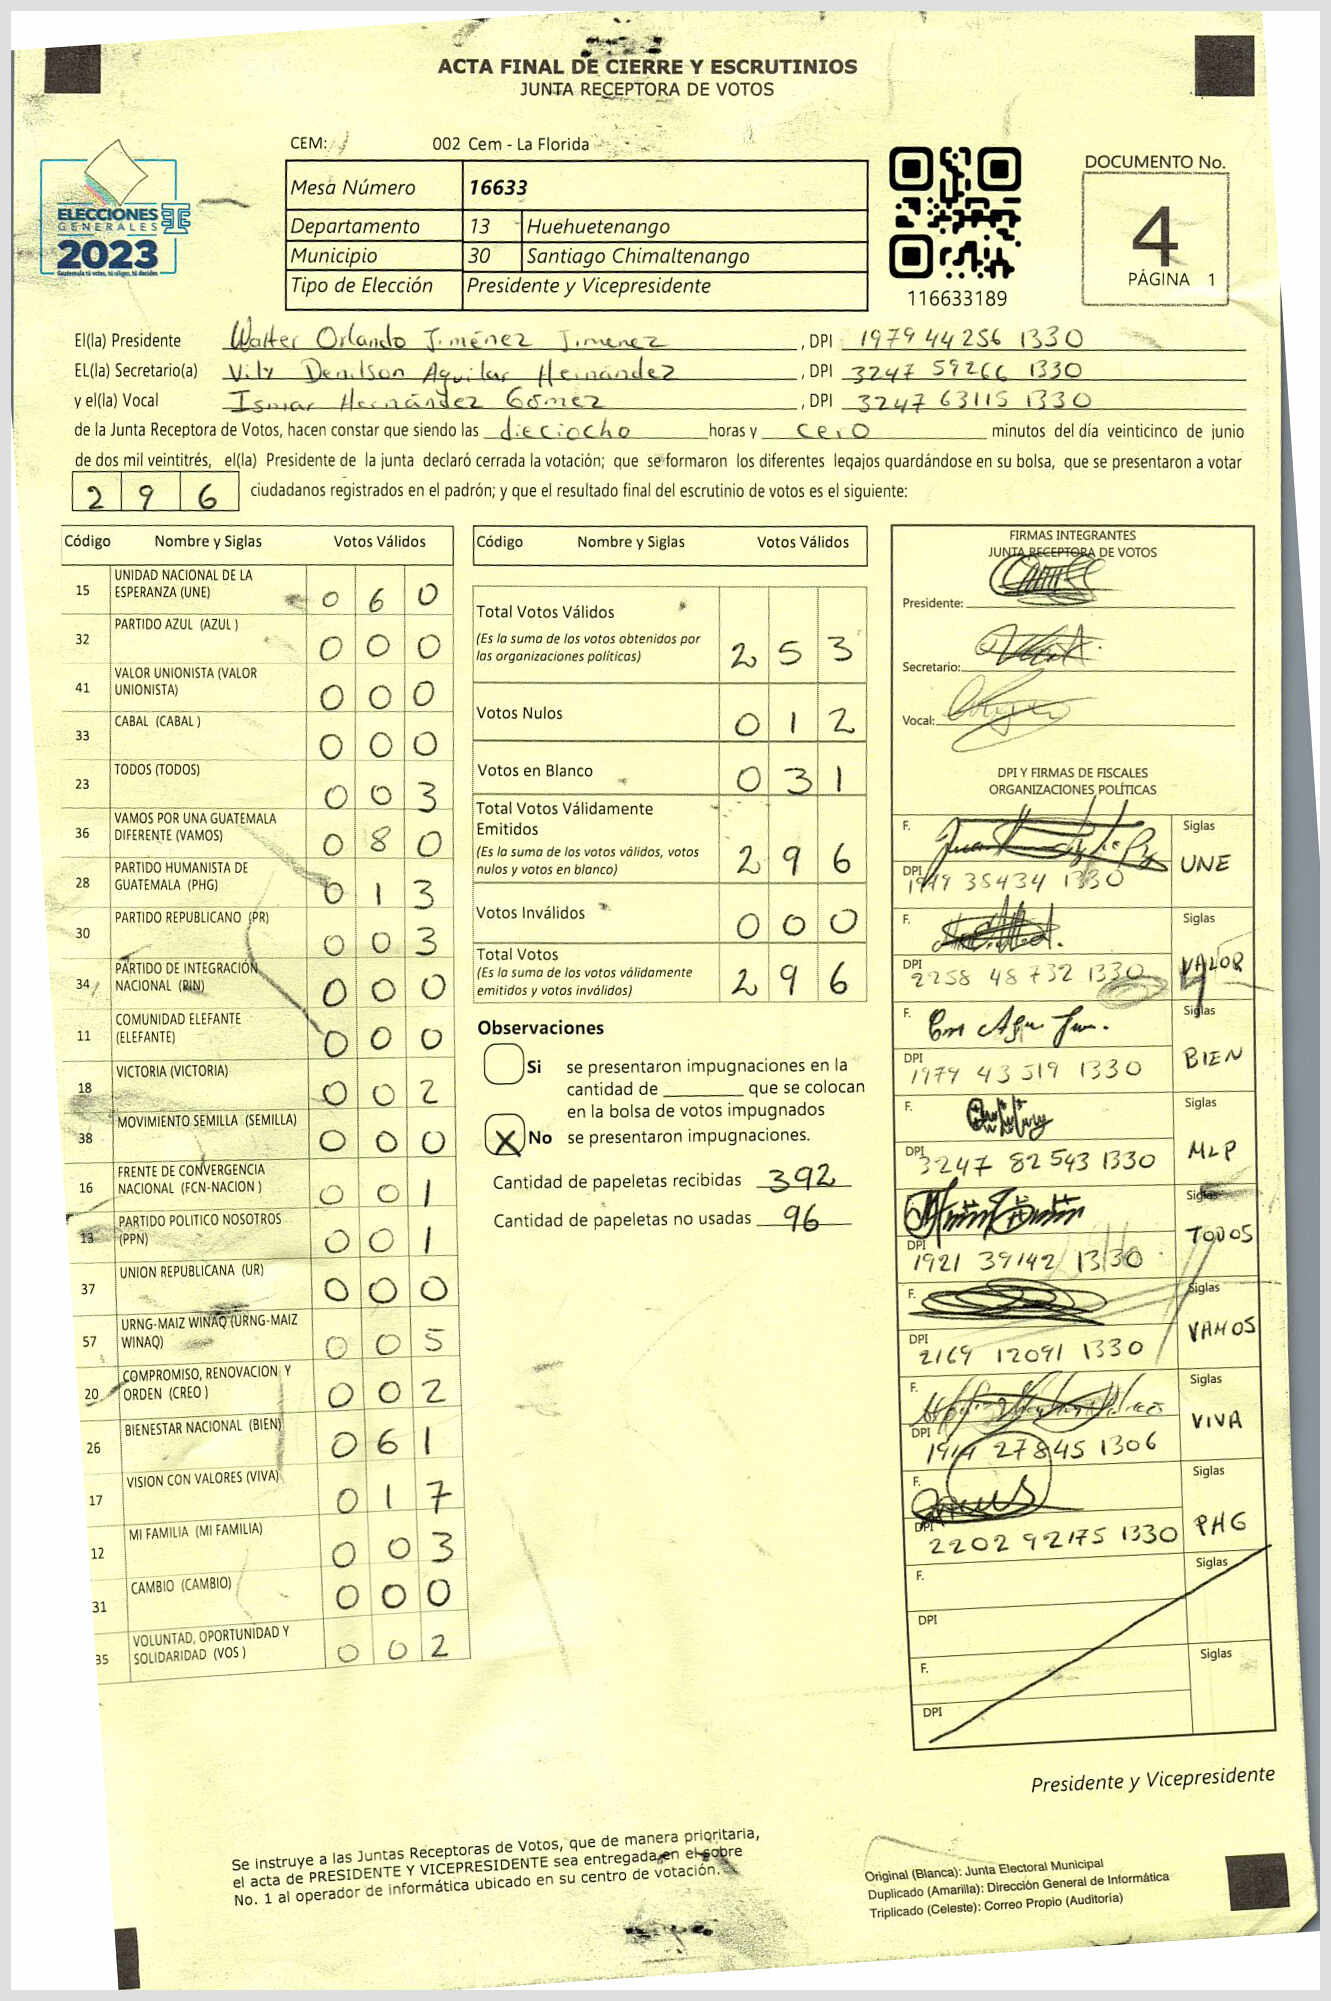 ACTA FINAL DE CIERRE Y ESCRUTINIOS
JUNTA RECEPTORA DE VOTOS
CEM: 002 Cem - La Florida
ELECCIONES
GENERALES
2023
Guatemala tú votas, tú eliges, tú decides
Mesa Número 16633
Departamento 13 Huehuetenango
Municipio 30 Santiago Chimaltenango
Tipo de Elección Presidente y Vicepresidente
116633189
DOCUMENTO No.
4
PÁGINA 1
El(la) Presidente Walter Orlando Jiménez Jimenez, DPI 1979 44256 1330
EL(la) Secretario(a) Vily Denilson Aguilar Hernández, DPI 3247 59266 1330
y el(la) Vocal Ismar Hernández Gómez, DPI 3247 63115 1330
de la Junta Receptora de Votos, hacen constar que siendo las dieciocho horas y cero minutos del día veinticinco de junio
de dos mil veintitrés, el(la) Presidente de la junta declaró cerrada la votación; que se formaron los diferentes legajos guardándose en su bolsa, que se presentaron a votar
296 ciudadanos registrados en el padrón; y que el resultado final del escrutinio de votos es el siguiente:
Código Nombre y Siglas Votos Válidos
15 UNIDAD NACIONAL DE LA ESPERANZA (UNE) 060
32 PARTIDO AZUL (AZUL ) 000
41 VALOR UNIONISTA (VALOR UNIONISTA) 000
33 CABAL (CABAL ) 000
23 TODOS (TODOS) 003
36 VAMOS POR UNA GUATEMALA DIFERENTE (VAMOS) 080
28 PARTIDO HUMANISTA DE GUATEMALA (PHG) 013
30 PARTIDO REPUBLICANO (PR) 003
34 PARTIDO DE INTEGRACIÓN NACIONAL (PIN) 000
11 COMUNIDAD ELEFANTE (ELEFANTE) 000
18 VICTORIA (VICTORIA) 002
38 MOVIMIENTO SEMILLA (SEMILLA) 000
16 FRENTE DE CONVERGENCIA NACIONAL (FCN-NACION ) 001
13 PARTIDO POLITICO NOSOTROS (PPN) 001
37 UNION REPUBLICANA (UR) 000
57 URNG-MAIZ WINAQ (URNG-MAIZ WINAQ) 005
20 COMPROMISO, RENOVACION Y ORDEN (CREO ) 002
26 BIENESTAR NACIONAL (BIEN) 061
17 VISION CON VALORES (VIVA) 017
12 MI FAMILIA (MI FAMILIA) 003
31 CAMBIO (CAMBIO) 000
35 VOLUNTAD, OPORTUNIDAD Y SOLIDARIDAD (VOS ) 002
Código Nombre y Siglas Votos Válidos
Total Votos Válidos 253
(Es la suma de los votos obtenidos por
las organizaciones políticas)
Votos Nulos 012
Votos en Blanco 031
Total Votos Válidamente
Emitidos 296
(Es la suma de los votos válidos, votos
nulos y votos en blanco)
Votos Inválidos 000
Total Votos 296
(Es la suma de los votos válidamente
emitidos y votos inválidos)
Observaciones
Si se presentaron impugnaciones en la
cantidad de ________ que se colocan
en la bolsa de votos impugnados
X No se presentaron impugnaciones.
Cantidad de papeletas recibidas 392
Cantidad de papeletas no usadas 96
FIRMAS INTEGRANTES
JUNTA RECEPTORA DE VOTOS
Presidente:
Secretario:
Vocal:
DPI Y FIRMAS DE FISCALES
ORGANIZACIONES POLÍTICAS
F. Siglas UNE
DPI 1979 35434 1330
F. Siglas VALOR
DPI 2258 48732 1330
F. Siglas BIEN
DPI 1979 43519 1330
F. Siglas MLP
DPI 3247 82543 1330
Siglas TODOS
DPI 1921 39142 1330
F. Siglas VAMOS
DPI 2169 12091 1330
F. Siglas VIVA
DPI 1914 27845 1306
F. Siglas PHG
DPI 2202 92175 1330
F. Siglas
DPI
F. Siglas
DPI
Presidente y Vicepresidente
Se instruye a las Juntas Receptoras de Votos, que de manera prioritaria,
el acta de PRESIDENTE Y VICEPRESIDENTE sea entregada en el sobre
No. 1 al operador de informática ubicado en su centro de votación.
Original (Blanca): Junta Electoral Municipal
Duplicado (Amarilla): Dirección General de Informática
Triplicado (Celeste): Correo Propio (Auditoría)